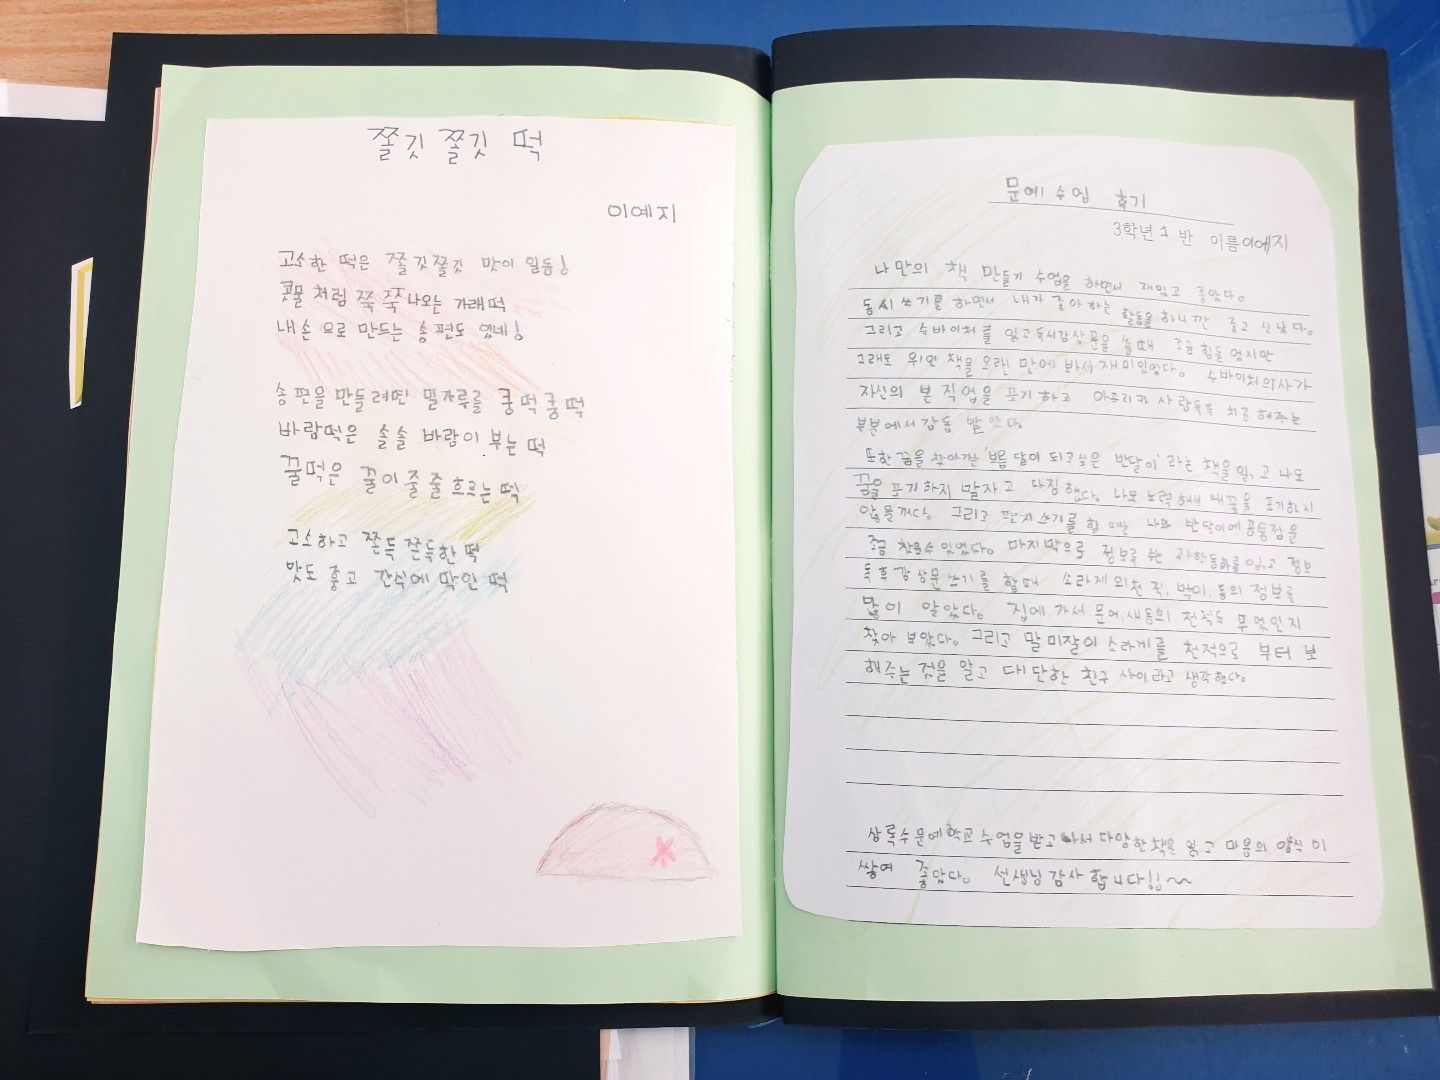 쫄깃 쫄깃 떡
이예지
고소한 떡은 쫄깃쫄깃 맛이 일품!
콧물처럼 쭉 쭉 나오는 가래떡
내 손으로 만드는 송편도 있네!
송편을 만들려면 밀가루를 쿵떡쿵떡
바람떡은 솔솔 바람이 부는 떡
꿀떡은 꿀이 줄줄 흐르는 떡
고소하고 쫀득쫀득한 떡
맛도 좋고 간식에 딱인 떡
문예 수업 후기
3학년 1 반 이름이예지
나만의 책 만들기 수업을 하면서 재밌고 좋았다.
동시 쓰기를 하면서 내가 좋아하는 활동을 하니깐 좋고 신났다.
그리고 슈바이처를 읽고 독서감상문을 쓸 때 조금 힘들었지만
그래도 위인 책을 오랜만에 봐서 재미있었다. 슈바이처 의사가
자신의 본 직업을 포기하고 아프리카 사람들을 치료해주는
부분에서 감동 받았다.
또한 꿈을 찾아간 '보름달이 되고싶은 반달이' 라는 책을 읽고 나도
꿈을 포기하지 말자고 다짐했다. 나도 노력해서 내꿈을 포기하지
않을꺼다. 그리고 편지쓰기를 할 때는 나와 반달이에 공통점을
조금 찾을수 있었다. 마지막으로 정보를 주는 과학동화를 읽고 정보
독후감상문 쓰기를 할때 소라게의 천적, 먹이, 등의 정보를
많이 알았다. 집에 가서 문어, 새 등의 천적도 무엇인지
찾아 보았다. 그리고 말미잘이 소라게를 천적으로 부터 보
해주는 것을 알고 대단한 친구 사이라고 생각했다.
상록수문예학교 수업을 받고 나서 다양한 책을 읽고 마음의 양식이
쌓여 좋았다. 선생님 감사합니다!!~